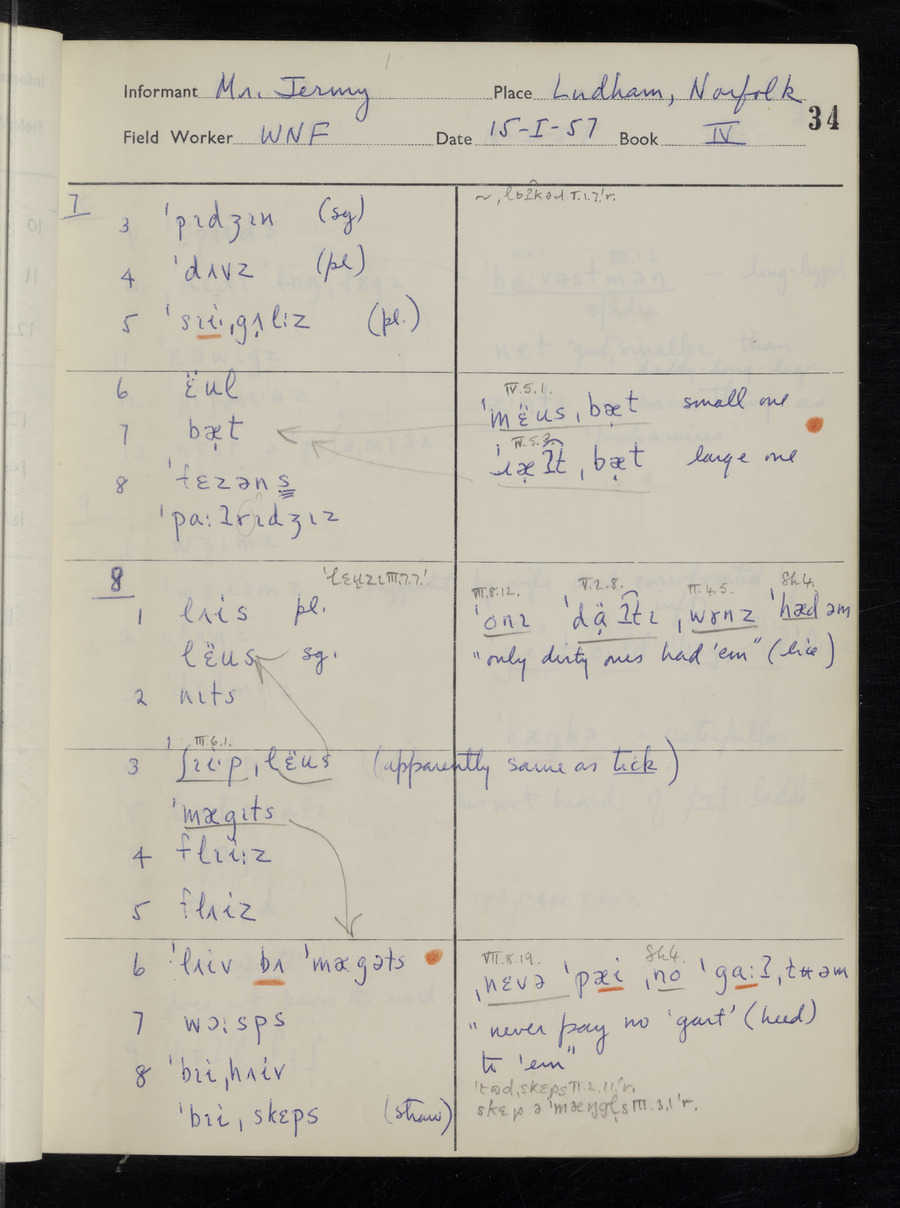 Informant Mr. Jermy Place Ludham, Norfolk
34
Field Worker WNF Date 15-I-57 Book IV
7
3 ˈpɪdʒɪn (sg)
4 ˈdʌvz (pl)
5 ˈsɪi·ˌgʌlːz (pl.)
6 ëul
7 bæt
8 ˈfɛzəns
ˈpaːʔrɪdʒɪz
IV.5.1.
ˈmëusˌbæt small one
IV.5.3.
ˌbæt large one
8
ˈlɛuzɪ III.7.7.ˈ
1 lʌis pl.
lëus sg.
2 nɪts
VII.8.12. V.2.8. II.4.5. Sh4.
ˈonɪ ˈdạ̈ʔtɪ ˌwɜnz ˈhæd əm
"only dirty ones had 'em" (lice)
III.6.1.
3 ˈʃɪi·pˌlëus (apparently same as tick)
ˈmægɪts
4 flɪiːz
5 flʌiz
6 ˈlʌiv bʌ ˈmægəts
7 wɔːsps
8 ˈbɪiˌhʌiv
ˈbɪiˌskɛps (straw)
VII.8.19. Sh4.
ˌnɛvə ˈpæi ˌno ˈgaːʔˌtʉəm
"never pay no 'gart' (heed)
to 'em"